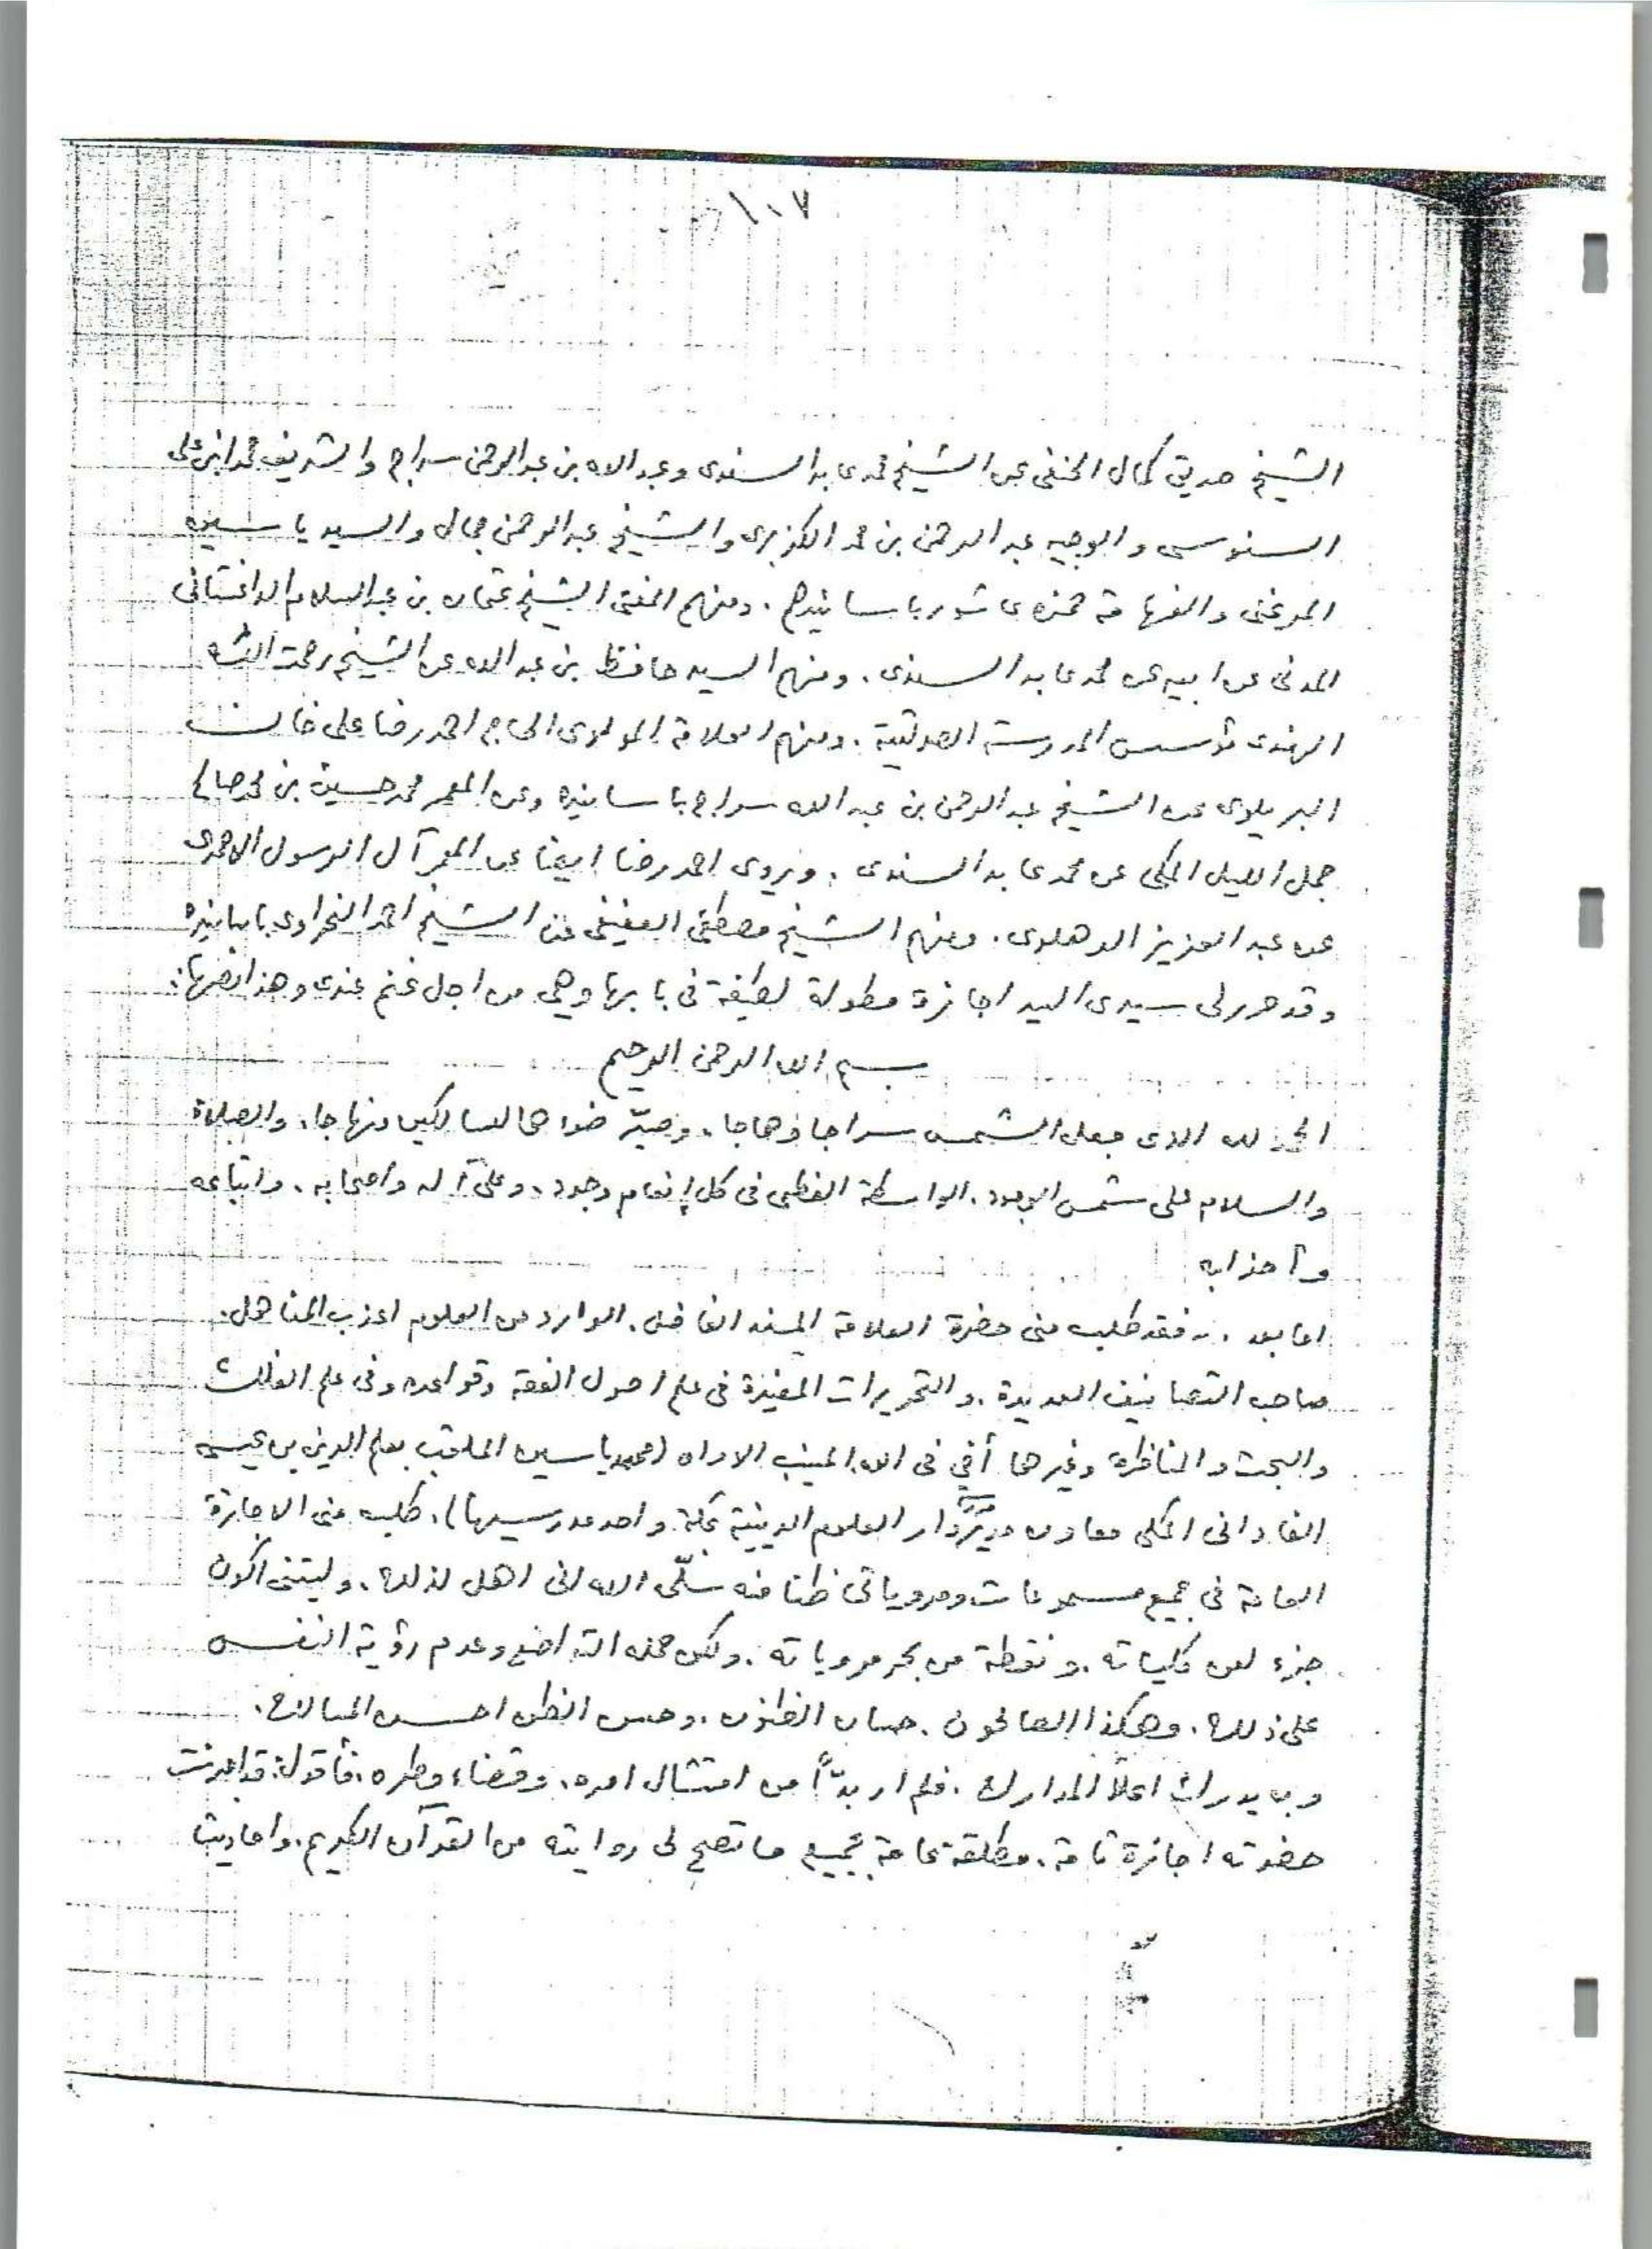 ١٠٧
الشيخ صديق كمال الحنفى عن الشيخ محمد عابد السندى وعبد الله بن عبد الرحمن سراج والشريف محمد ابن على
السنوسى والوجيه عبد الرحمن بن محمد الكزبرى والشيخ عبد الرحمن جمال والسيد ياسين
المرغنى والفهامة حمزه عاشور باسانيدهم . ومنهم المفتى الشيخ عثمان بن عبد السلام الداغستانى
المدنى عن ابيه عن محمد عابد السندى . ومنهم السيد حافظ بن عبد الله عن الشيخ رحمت الله
الهندى مؤسس المدرسة الصولتية . ومنهم العلامة المولوى الحاج احمد رضا على خان
البريلوى عن الشيخ عبد الرحمن بن عبد الله سراج باسانيده وعن المعمر محمد حسين بن محمد صالح
جمل الليل المكى عن محمد عابد السندى . ويروى احمد رضا ايضا عن المعمر آل الرسول الاحمدى
عن عبد العزيز الدهلوى . ومنهم الشيخ مصطفى العفيفى عن الشيخ احمد النحراوى باسانيده
وقد حرر لى سيدى السيد اجازة مطولة لطيفة فى بابها وهى من اجل غنم عندى وهذا نصها :
بسم الله الرحمن الرحيم
الحمد لله الذى جعل الشمس سراجا وهاجا ، وصيّر ضواها للسالكين منهاجا ، والصلاة
والسلام على شمس الوجود ، الواسطة العظمى فى كل إنعام وجود ، وعلى آله واصحابه ، واتباعه
وأحزابه
اما بعد .. فقد طلب منى حضرة العلامة المسند الفاضل ، الوارد من العلوم اعذب المناهل ،
صاحب التصانيف العديدة ، والتحريرات المفيدة فى علم اصول الفقه وقواعده وفى علم الفلك
والبحث والمناظرة وغيرها أخى فى الله المنيب الاواه (محمد ياسين الملقب بعلم الدين بن عيسى
الفادانى المكى معاون مدير دار العلوم الدينية بمكة واحد مدرسيها) ، طلب منى الاجازة
العامة فى جميع مسموعات ومروياتى ظنا منه سلّمه الله انى اهل لذلك ، وليتنى اكون
جزء من كلياته ، ونقطة من بحر مروياته ، ولكن حمله التواضع وعدم رؤية النفس
على ذلك ، وهكذا الصالحون ، حسان الظنون ، وحسن الظن احسن المسالك ،
وبه يدرك اعلا المدارك ، فلم ار بدّاً من امتثال امره ، وقضاء وطره ، فأقول : قد اجزت
حضرته اجازة تامة ، مطلقة عامة بجميع ما تصح لى روايته من القرآن الكريم ، واحاديث